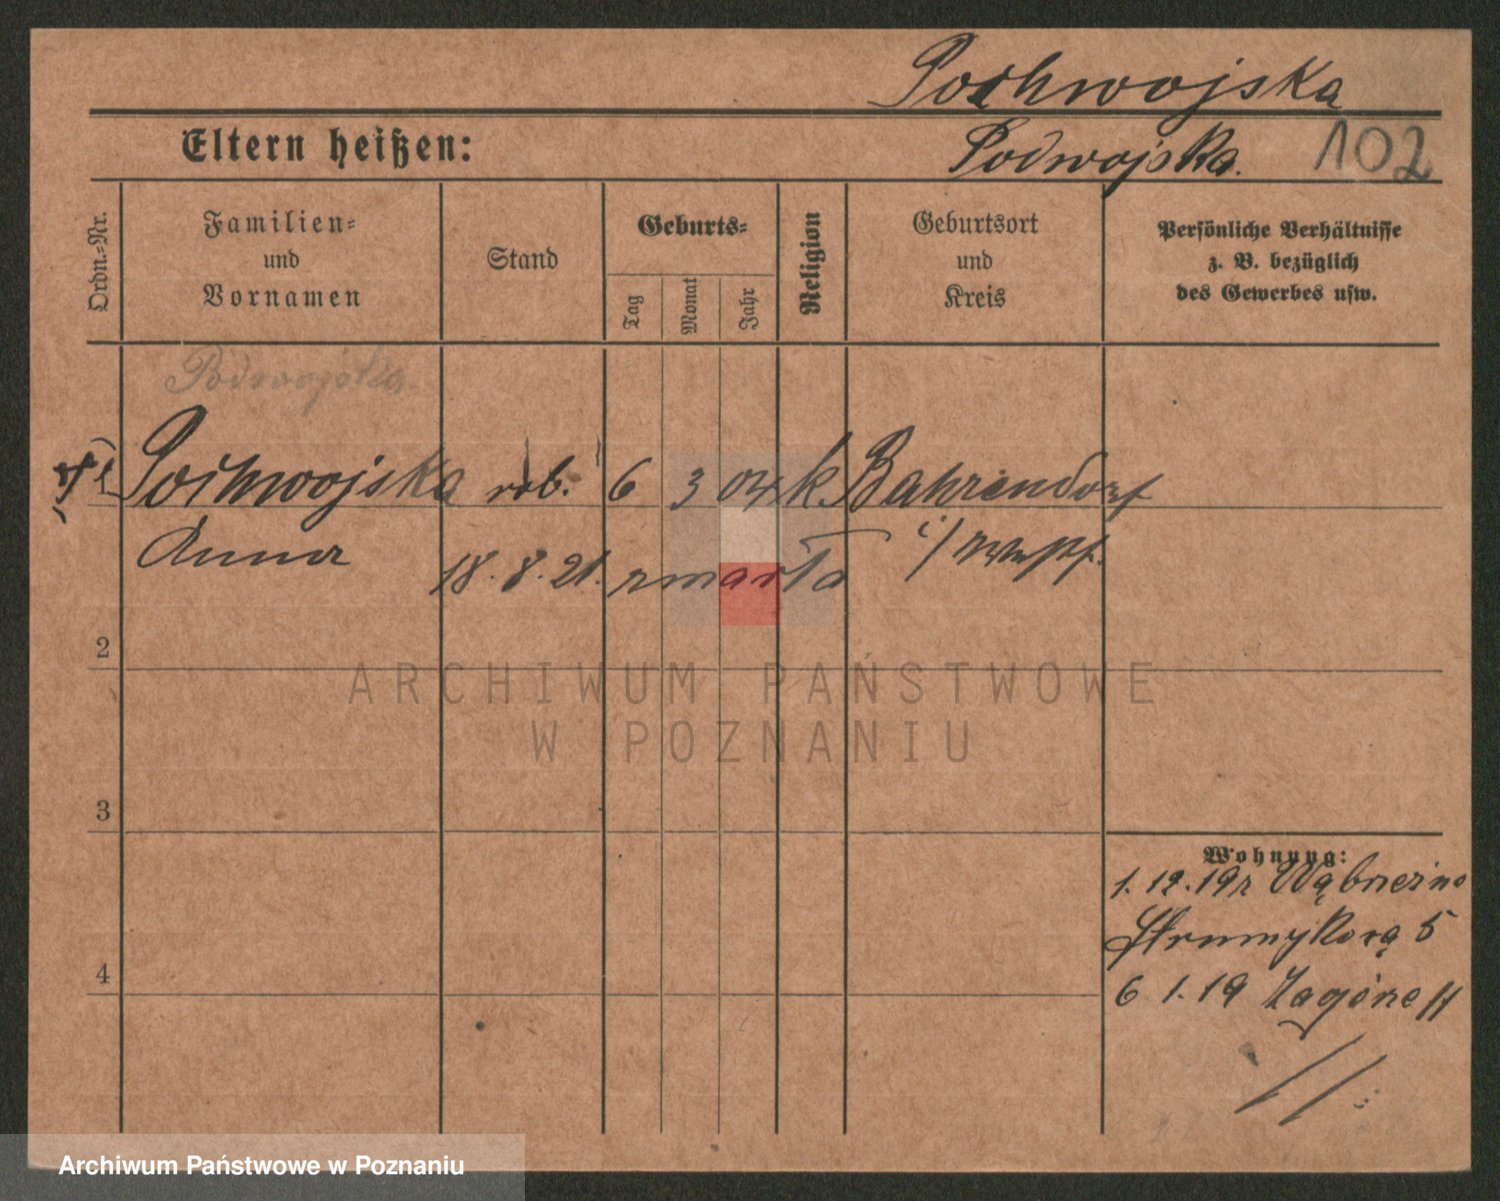 Pochwojska
Eltern heißen:
Podwojska.
102
Ordn.-Nr.
Familien-
und
Vornamen
Stand
Geburts-
Tag
Monat
Jahr
Religion
Geburtsort
und
Kreis
Persönliche Verhältnisse
z. B. bezüglich
des Gewerbes usw.
Podwojska
Pochwojska rob. 6 3 04 k. Bahrendorf
Anna
18.8.21. zmarła
2
3
4
Wohnung:
1.12.19r Wąbrzeźno
Strumykową 5
6 1.19 Zagórze 11
ARCHIWUM PAŃSTWOWE
W POZNANIU
Archiwum Państwowe w Poznaniu